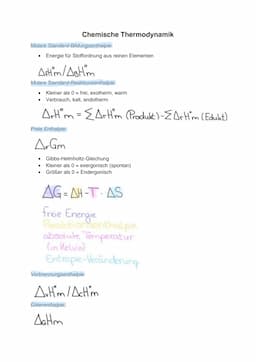 Chemische Thermodynamik
Molare Standard-Bildungsenthalpie
• Energie für Stoffordnung aus reinen Elementen
ΔfH°m/ΔBH°m
Molare Standard-Reaktionsenthalpie
• Kleiner als 0 = frei, exotherm, warm
• Verbrauch, kalt, endotherm
ΔrH°m = ΣΔfH°m (Produkt)-ΣΔfH°m (Edukt)
Freie Enthalpie
ΔrGm
• Gibbs-Helmholtz-Gleichung
• Kleiner als 0 = exergonisch (spontan)
• Größer als 0 = Endergonisch
ΔG = ΔH-T·ΔS
freie Energie
Reaktionsenthalpie
absolute Temperatur
(in Kelvin)
Entropie-Veränderung
Verbrennungsenthalpie
ΔvH°m/ΔcH°m
Gitterenthalpie
ΔGHm